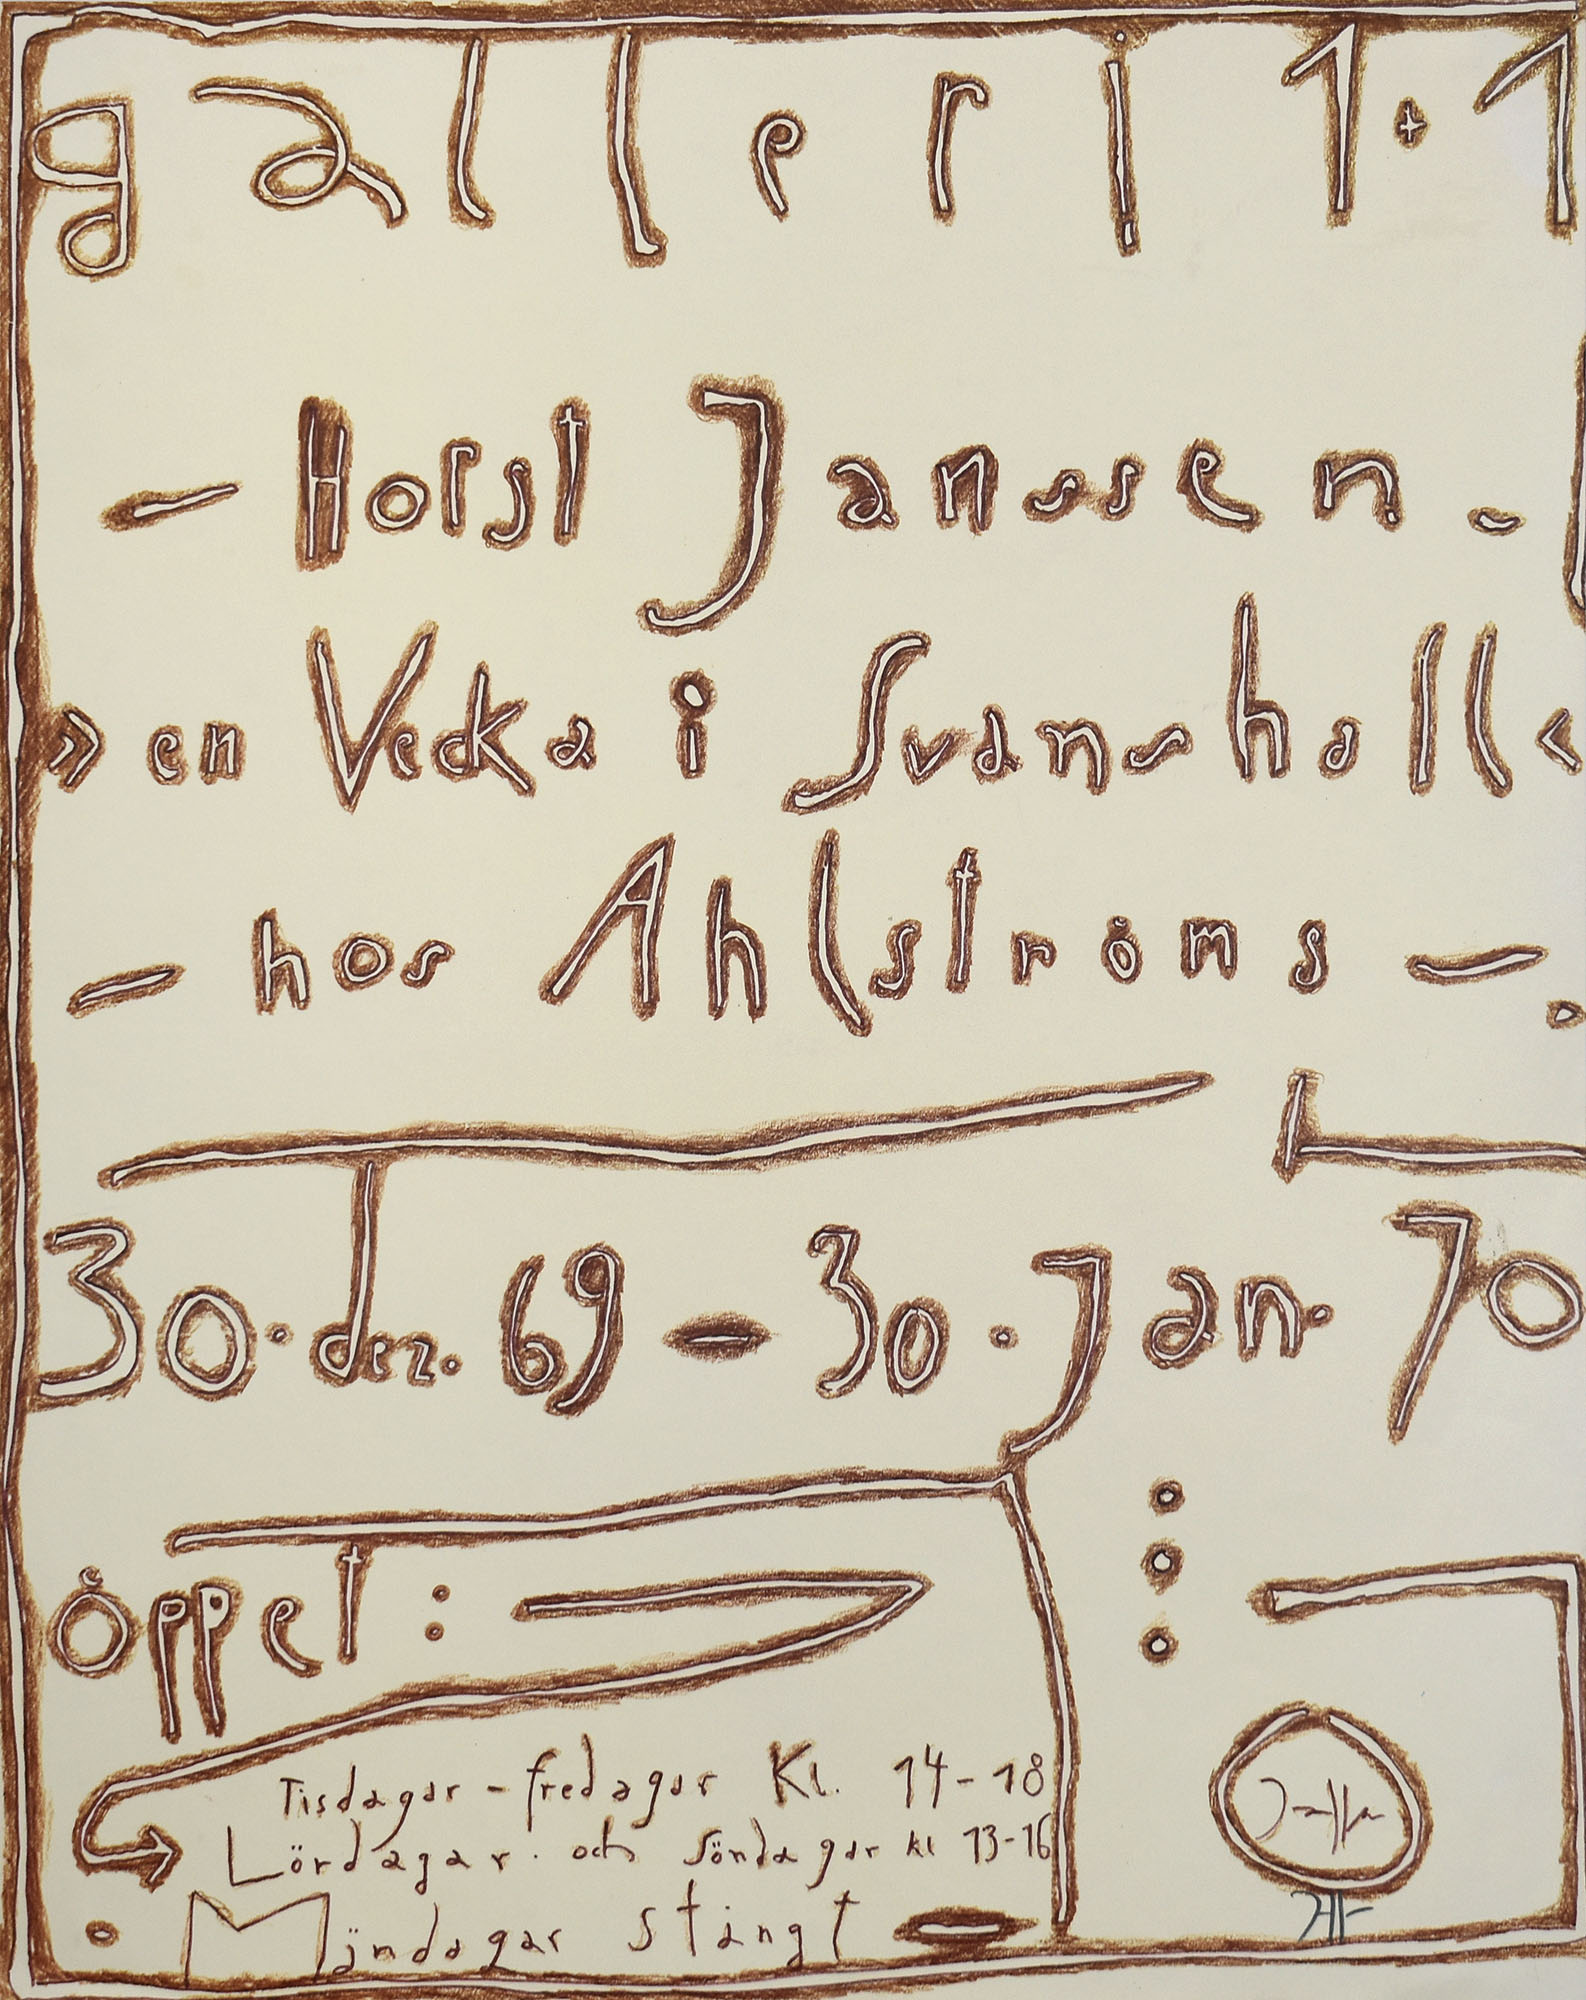 galleri 1+1
– Horst Janssen –
» en Vecka i Svansholl «
– hos Ahlströms –.
30. dez. 69 – 30. Jan. 70
Öppet :
Tisdagar – fredagar Kl. 14-18
Lördagar. och Söndagar kl 13-16
. Måndagar stängt –